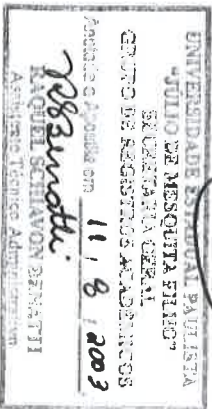 UNIVERSIDADE ESTADUAL PAULISTA
"JULIO DE MESQUITA FILHO"
SECRETARIA GERAL
GRUPO DE REGISTROS ACADÊMICOS
11 / 8 / 2003
RAQUEL SCHIAVON
Assistente Técnico Administrativo